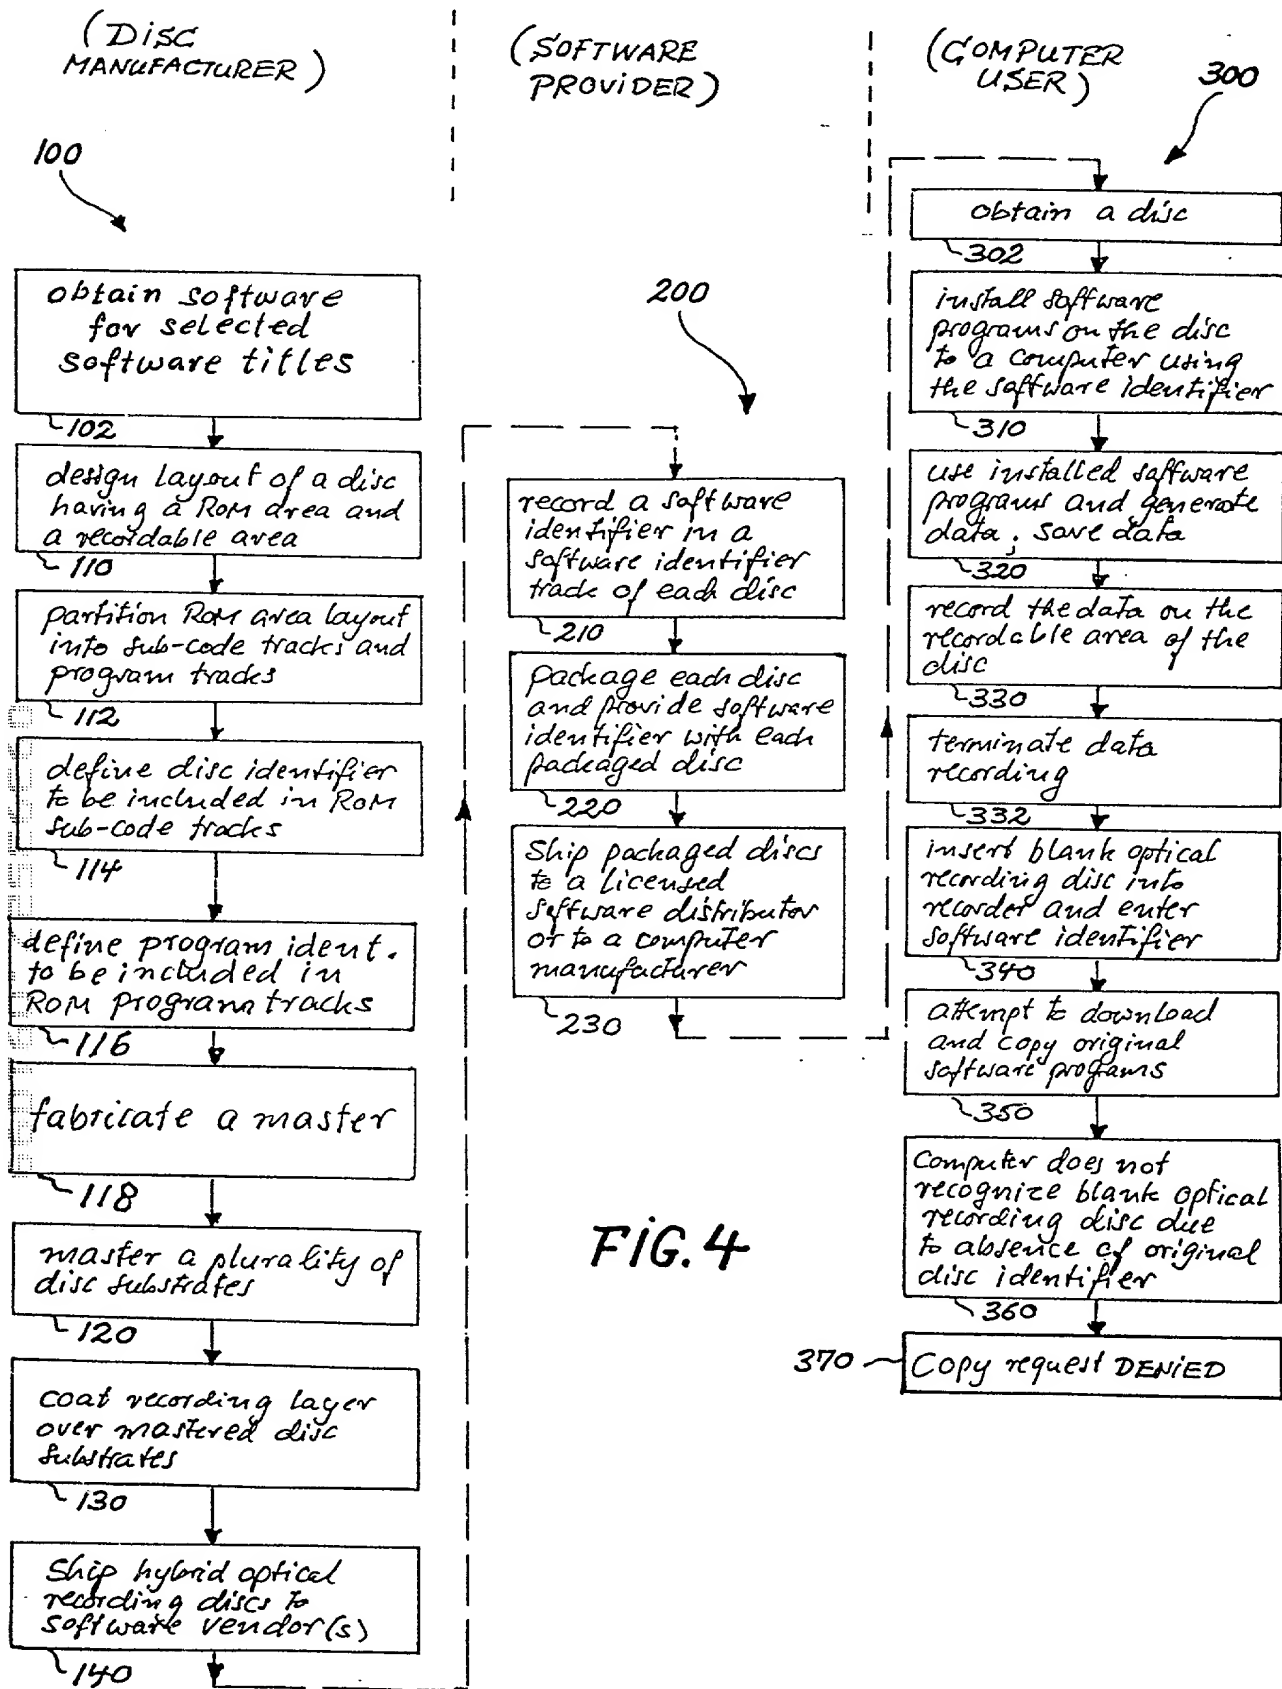 (DISC
MANUFACTURER)
100
obtain software
for selected
software titles
102
design layout of a disc
having a ROM area and
a recordable area
110
partition ROM area layout
into sub-code tracks and
program tracks
112
define disc identifier
to be included in ROM
sub-code tracks
114
define program ident.
to be included in
ROM program tracks
116
fabricate a master
118
master a plurality of
disc substrates
120
coat recording layer
over mastered disc
substrates
130
Ship hybrid optical
recording discs to
software vendor(s)
140
(SOFTWARE
PROVIDER)
200
record a software
identifier in a
software identifier
track of each disc
210
package each disc
and provide software
identifier with each
packaged disc
220
Ship packaged discs
to a licensed
software distributor
or to a computer
manufacturer
230
(COMPUTER
USER)
300
obtain a disc
302
install software
programs on the disc
to a computer using
the software identifier
310
use installed software
programs and generate
data; save data
320
record the data on the
recordable area of the
disc
330
terminate data
recording
332
insert blank optical
recording disc into
recorder and enter
software identifier
340
attempt to download
and copy original
software programs
350
Computer does not
recognize blank optical
recording disc due
to absence of original
disc identifier
360
370
Copy request DENIED
FIG. 4